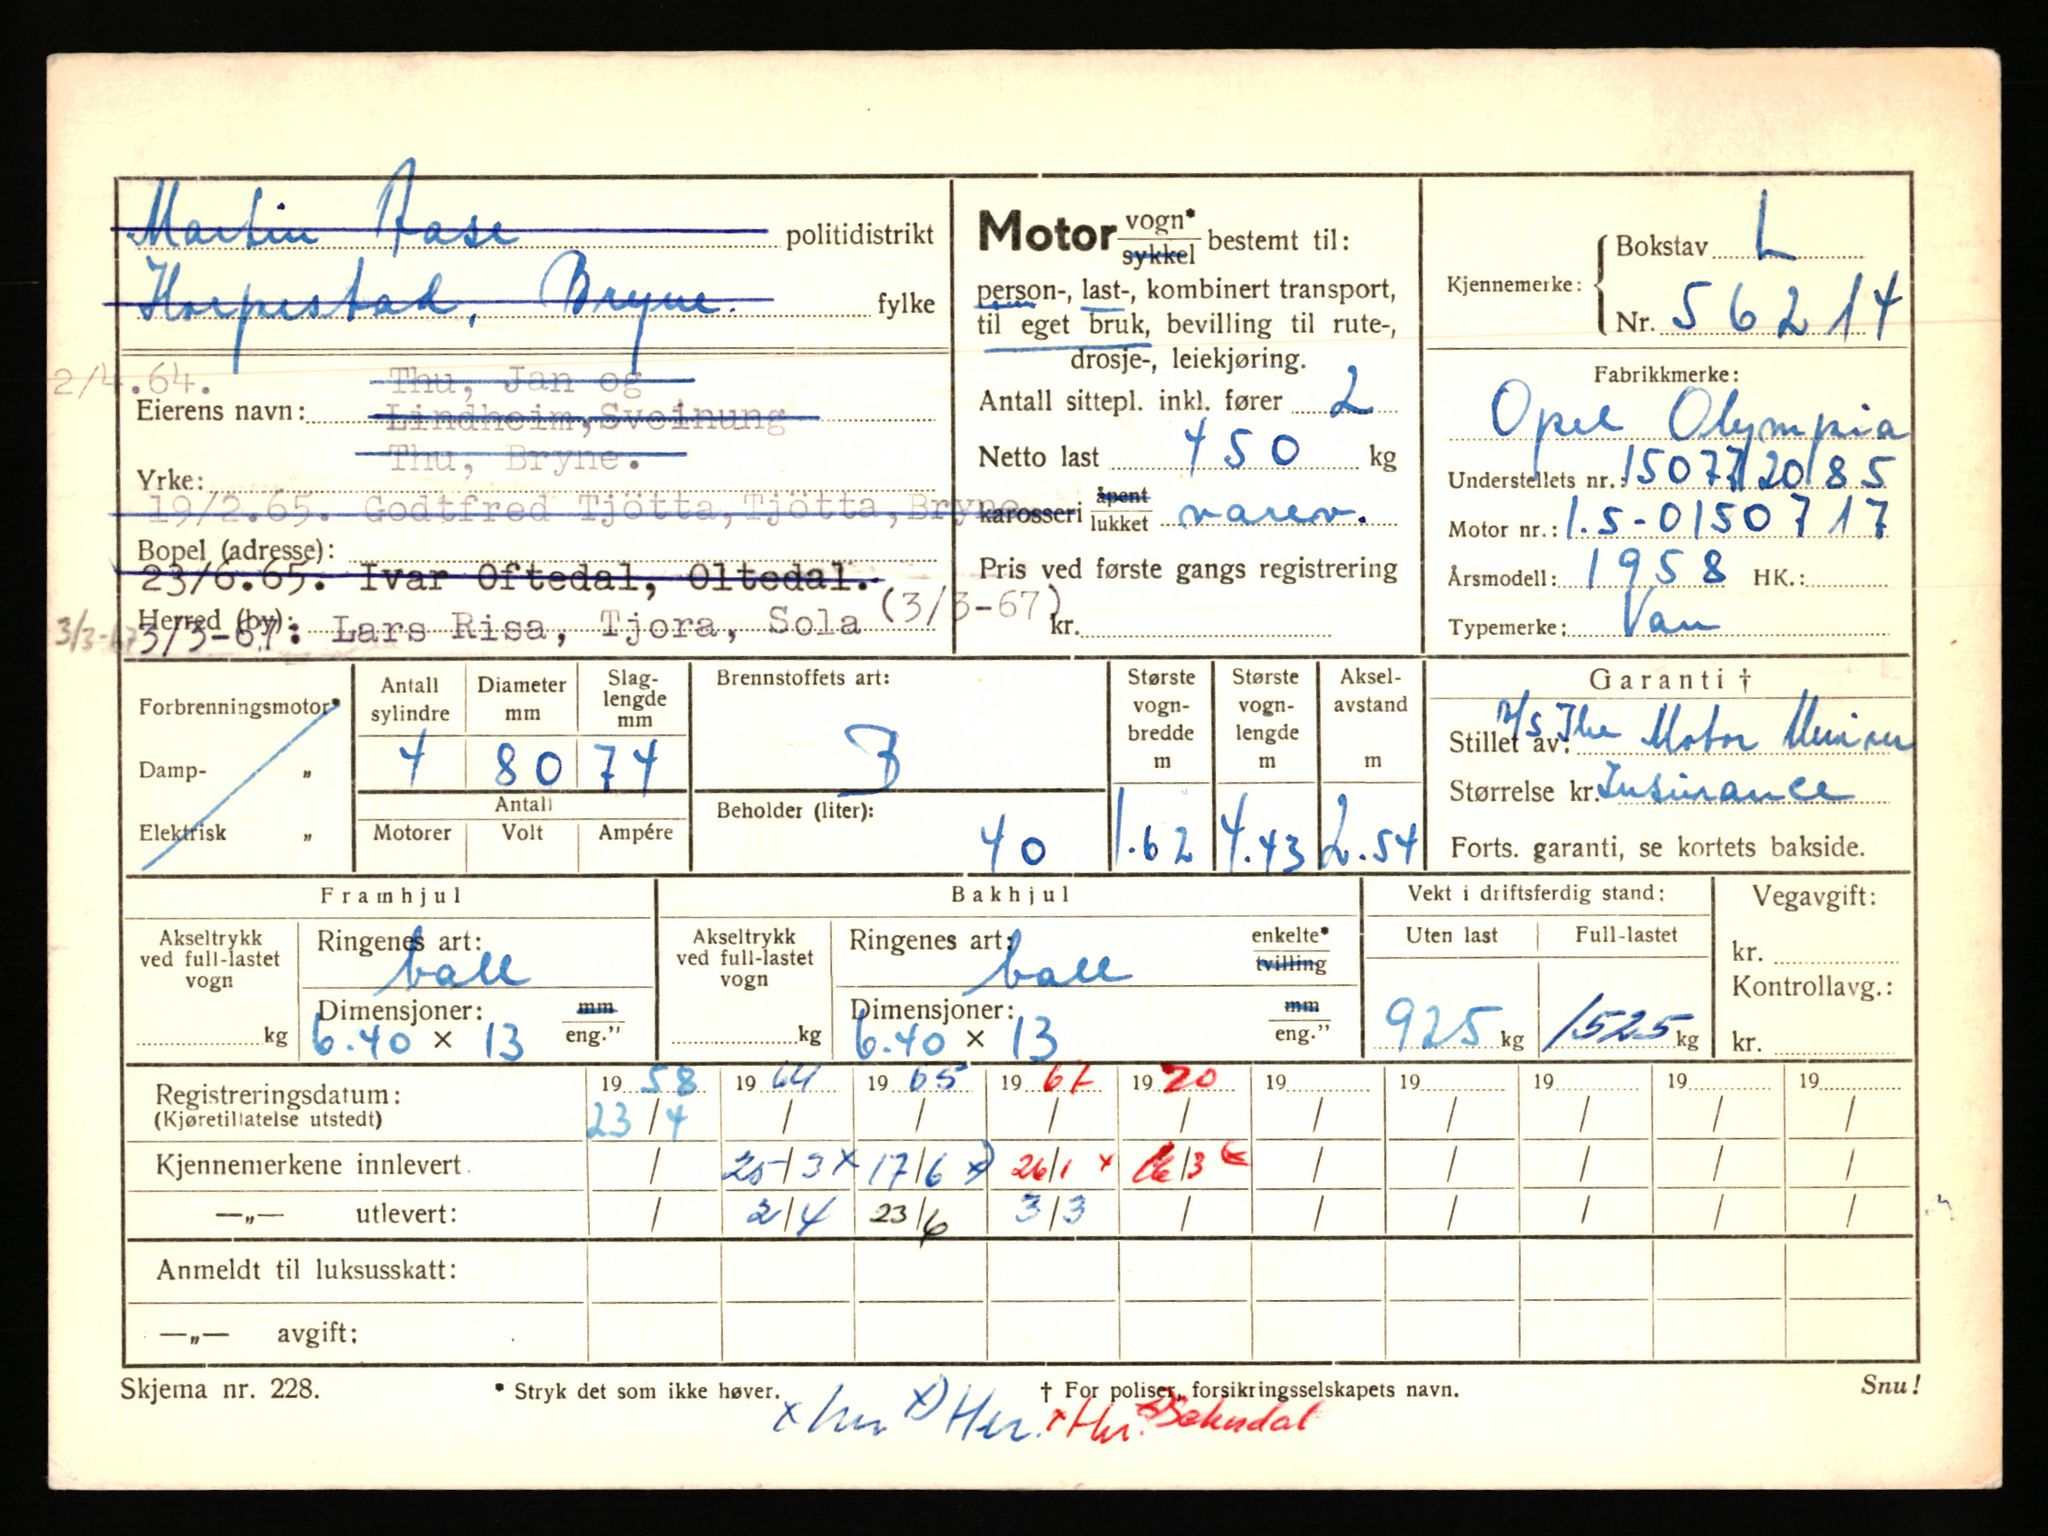 Martin Aase politidistrikt
Horpestad, Bryne. fylke
2/4.64. Thu, Jan og
Eierens navn: Lindheim, Sveinung
Thu, Bryne.
Yrke:
19/2.65. Godtfred Tjötta, Tjötta, Bryne
Bopel (adresse):
23/6.65. Ivar Oftedal, Oltedal.
Herred (by):
3/3-67 3/3-67: Lars Risa, Tjora, Sola (3/3-67)
Motor vogn* sykkel bestemt til:
person-, last-, kombinert transport,
til eget bruk, bevilling til rute-,
drosje-, leiekjøring.
Antall sittepl. inkl. fører 2
Netto last 450 kg
karosseri åpent lukket varev.
Pris ved første gangs registrering
kr.
Kjennemerke: Bokstav L
Nr. 56214
Fabrikkmerke:
Opel Olympia
Understellets nr.: 150772085
Motor nr.: 1.5-0150717
Årsmodell: 1958 HK.:
Typemerke: Van
Forbrenningsmotor*
Damp- „
Elektrisk „
Antall sylindre 4
Diameter mm 80
Slag-lengde mm 74
Antall
Motorer Volt Ampére
Brennstoffets art:
B
Beholder (liter):
40
Største vogn-bredde m 1.62
Største vogn-lengde m 4.43
Aksel-avstand m 2.54
Garanti †
Stillet av: A/S The Motor Union
Størrelse kr. Insurance
Forts. garanti, se kortets bakside.
Framhjul
Akseltrykk ved full-lastet vogn
kg
Ringenes art:
ball
Dimensjoner: mm
6.40 × 13 eng.”
Bakhjul
Akseltrykk ved full-lastet vogn
kg
Ringenes art: enkelte* tvilling
ball
Dimensjoner: mm
6.40 × 13 eng.”
Vekt i driftsferdig stand:
Uten last Full-lastet
925 kg 1525 kg
Vegavgift:
kr.
Kontrollavg.:
kr.
Registreringsdatum: 19 58 19 64 19 65 19 67 19 70 19 19 19 19 19
(Kjøretillatelse utstedt) 23/4 / / / / / / / / /
Kjennemerkene innlevert / 25/3 x 17/6 x) 26/1 x 16/3 / / / / /
—„— utlevert: / 2/4 23/6 3/3 / / / / / /
Anmeldt til luksusskatt:
—„— avgift:
Skjema nr. 228. * Stryk det som ikke høver. † For poliser, forsikringsselskapets navn. Snu!
x) Her. x Hr.